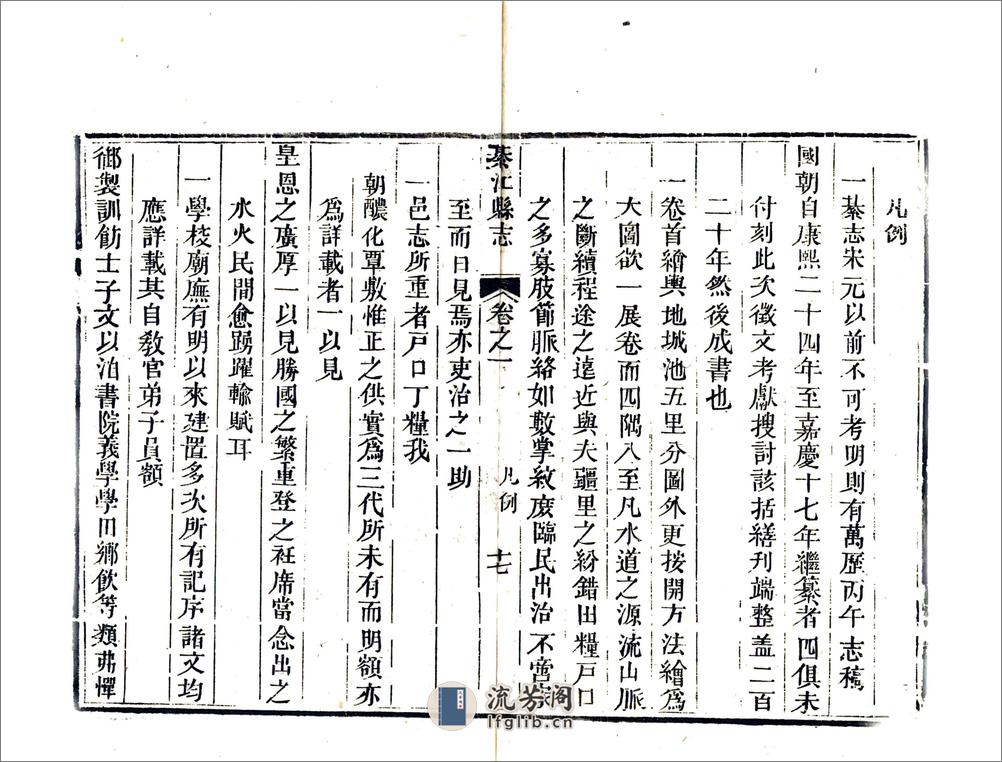 凡例
一綦志宋元以前不可考明則有萬歷丙午志稿
國朝自康熙二十四年至嘉慶十七年繼纂者四俱未
付刻此次徵文考獻搜討該括繕刊端整蓋二百
二十年然後成書也
一卷首繪輿地城池五里分圖外更按開方法繪爲
大圖欲一展卷而四隅八至凡水道之源流山脈
之斷續程途之遠近與夫疆里之紛錯田糧戸口
之多寡肢節脈絡如數掌紋庶臨民出治不啻
綦江縣志
卷之一
凡例
十七
至而日見焉亦吏治之一助
一邑志所重者戸口丁糧我
朝醲化覃敷惟正之供實爲三代所未有而明額亦
爲詳載者一以見
皇恩之廣厚一以見勝國之繁重登之衽席當念出之
水火民間愈踴躍輸賦耳
一學校廟廡有明以來建置多次所有記序諸文均
應詳載其自敎官弟子員額
御製訓飭士子文以洎書院義學學田鄉飲等類弗憚
流芳阁
lfglib.cn